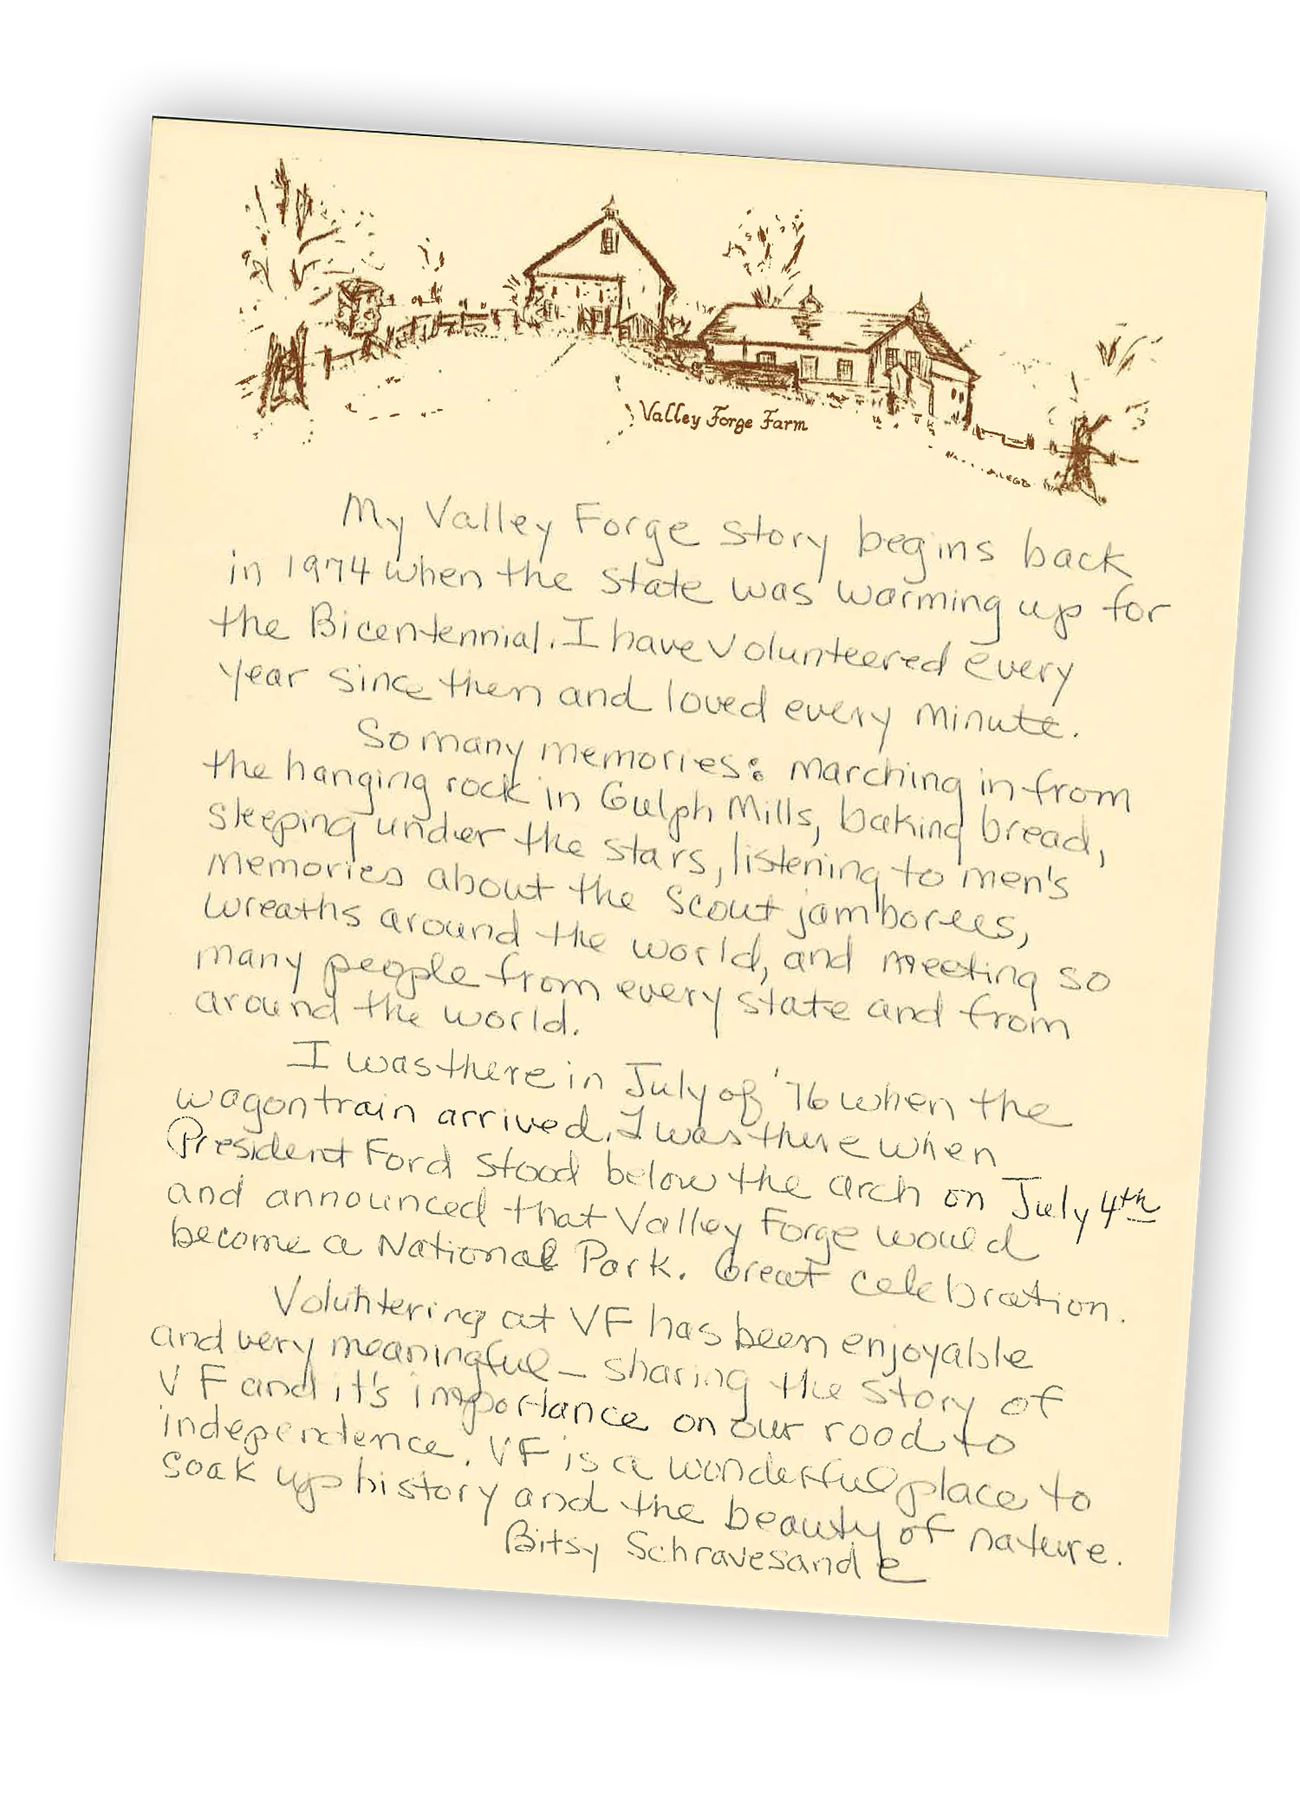 Valley Forge Farm
My Valley Forge story begins back
in 1974 when the State was warming up for
the Bicentennial. I have volunteered every
year since then and loved every minute.
So many memories: marching in from
the hanging rock in Gulph Mills, baking bread,
sleeping under the stars, listening to men's
memories about the Scout jamborees,
wreaths around the world, and meeting so
many people from every state and from
around the world.
I was there in July of '76 when the
wagontrain arrived. I was there when
President Ford stood below the arch on July 4th
and announced that Valley Forge would
become a National Park. Great celebration.
Voluntering at VF has been enjoyable
and very meaningful – sharing the story of
VF and it's importance on our road to
independence. VF is a wonderful place to
soak up history and the beauty of nature.
Bitsy Schravesande